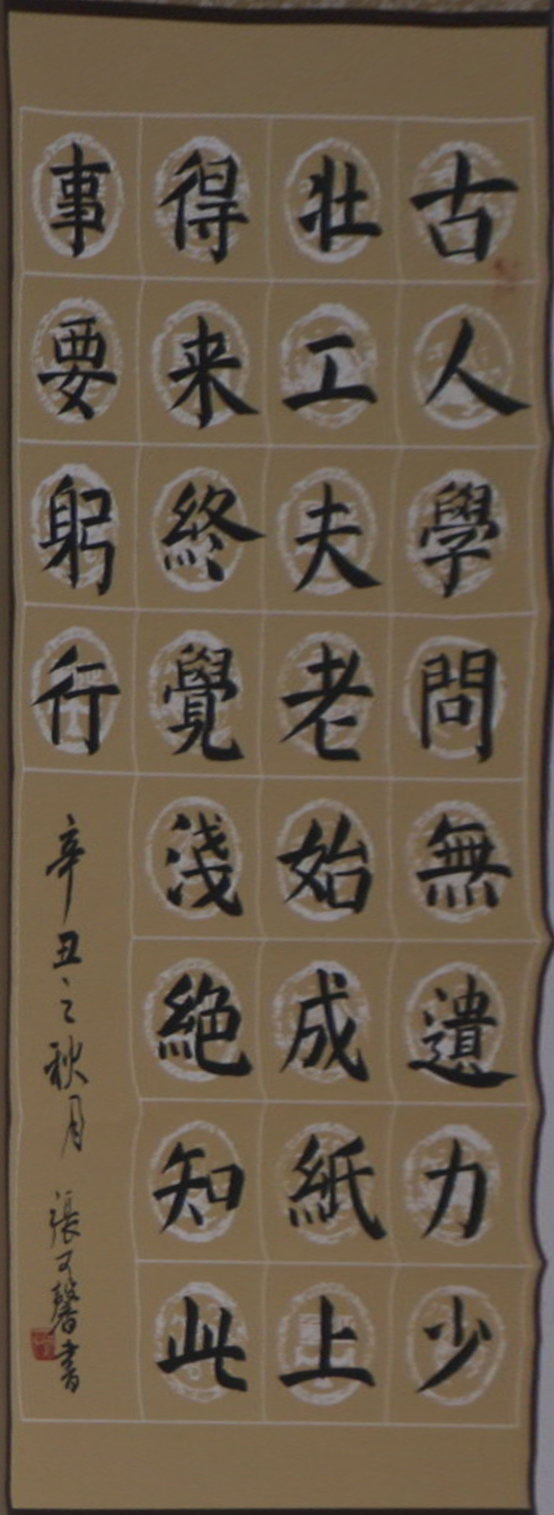 古人學問無遺力少
壯工夫老始成紙上
得来終覺淺絕知此
事要躬行
辛丑之秋月 張可馨書